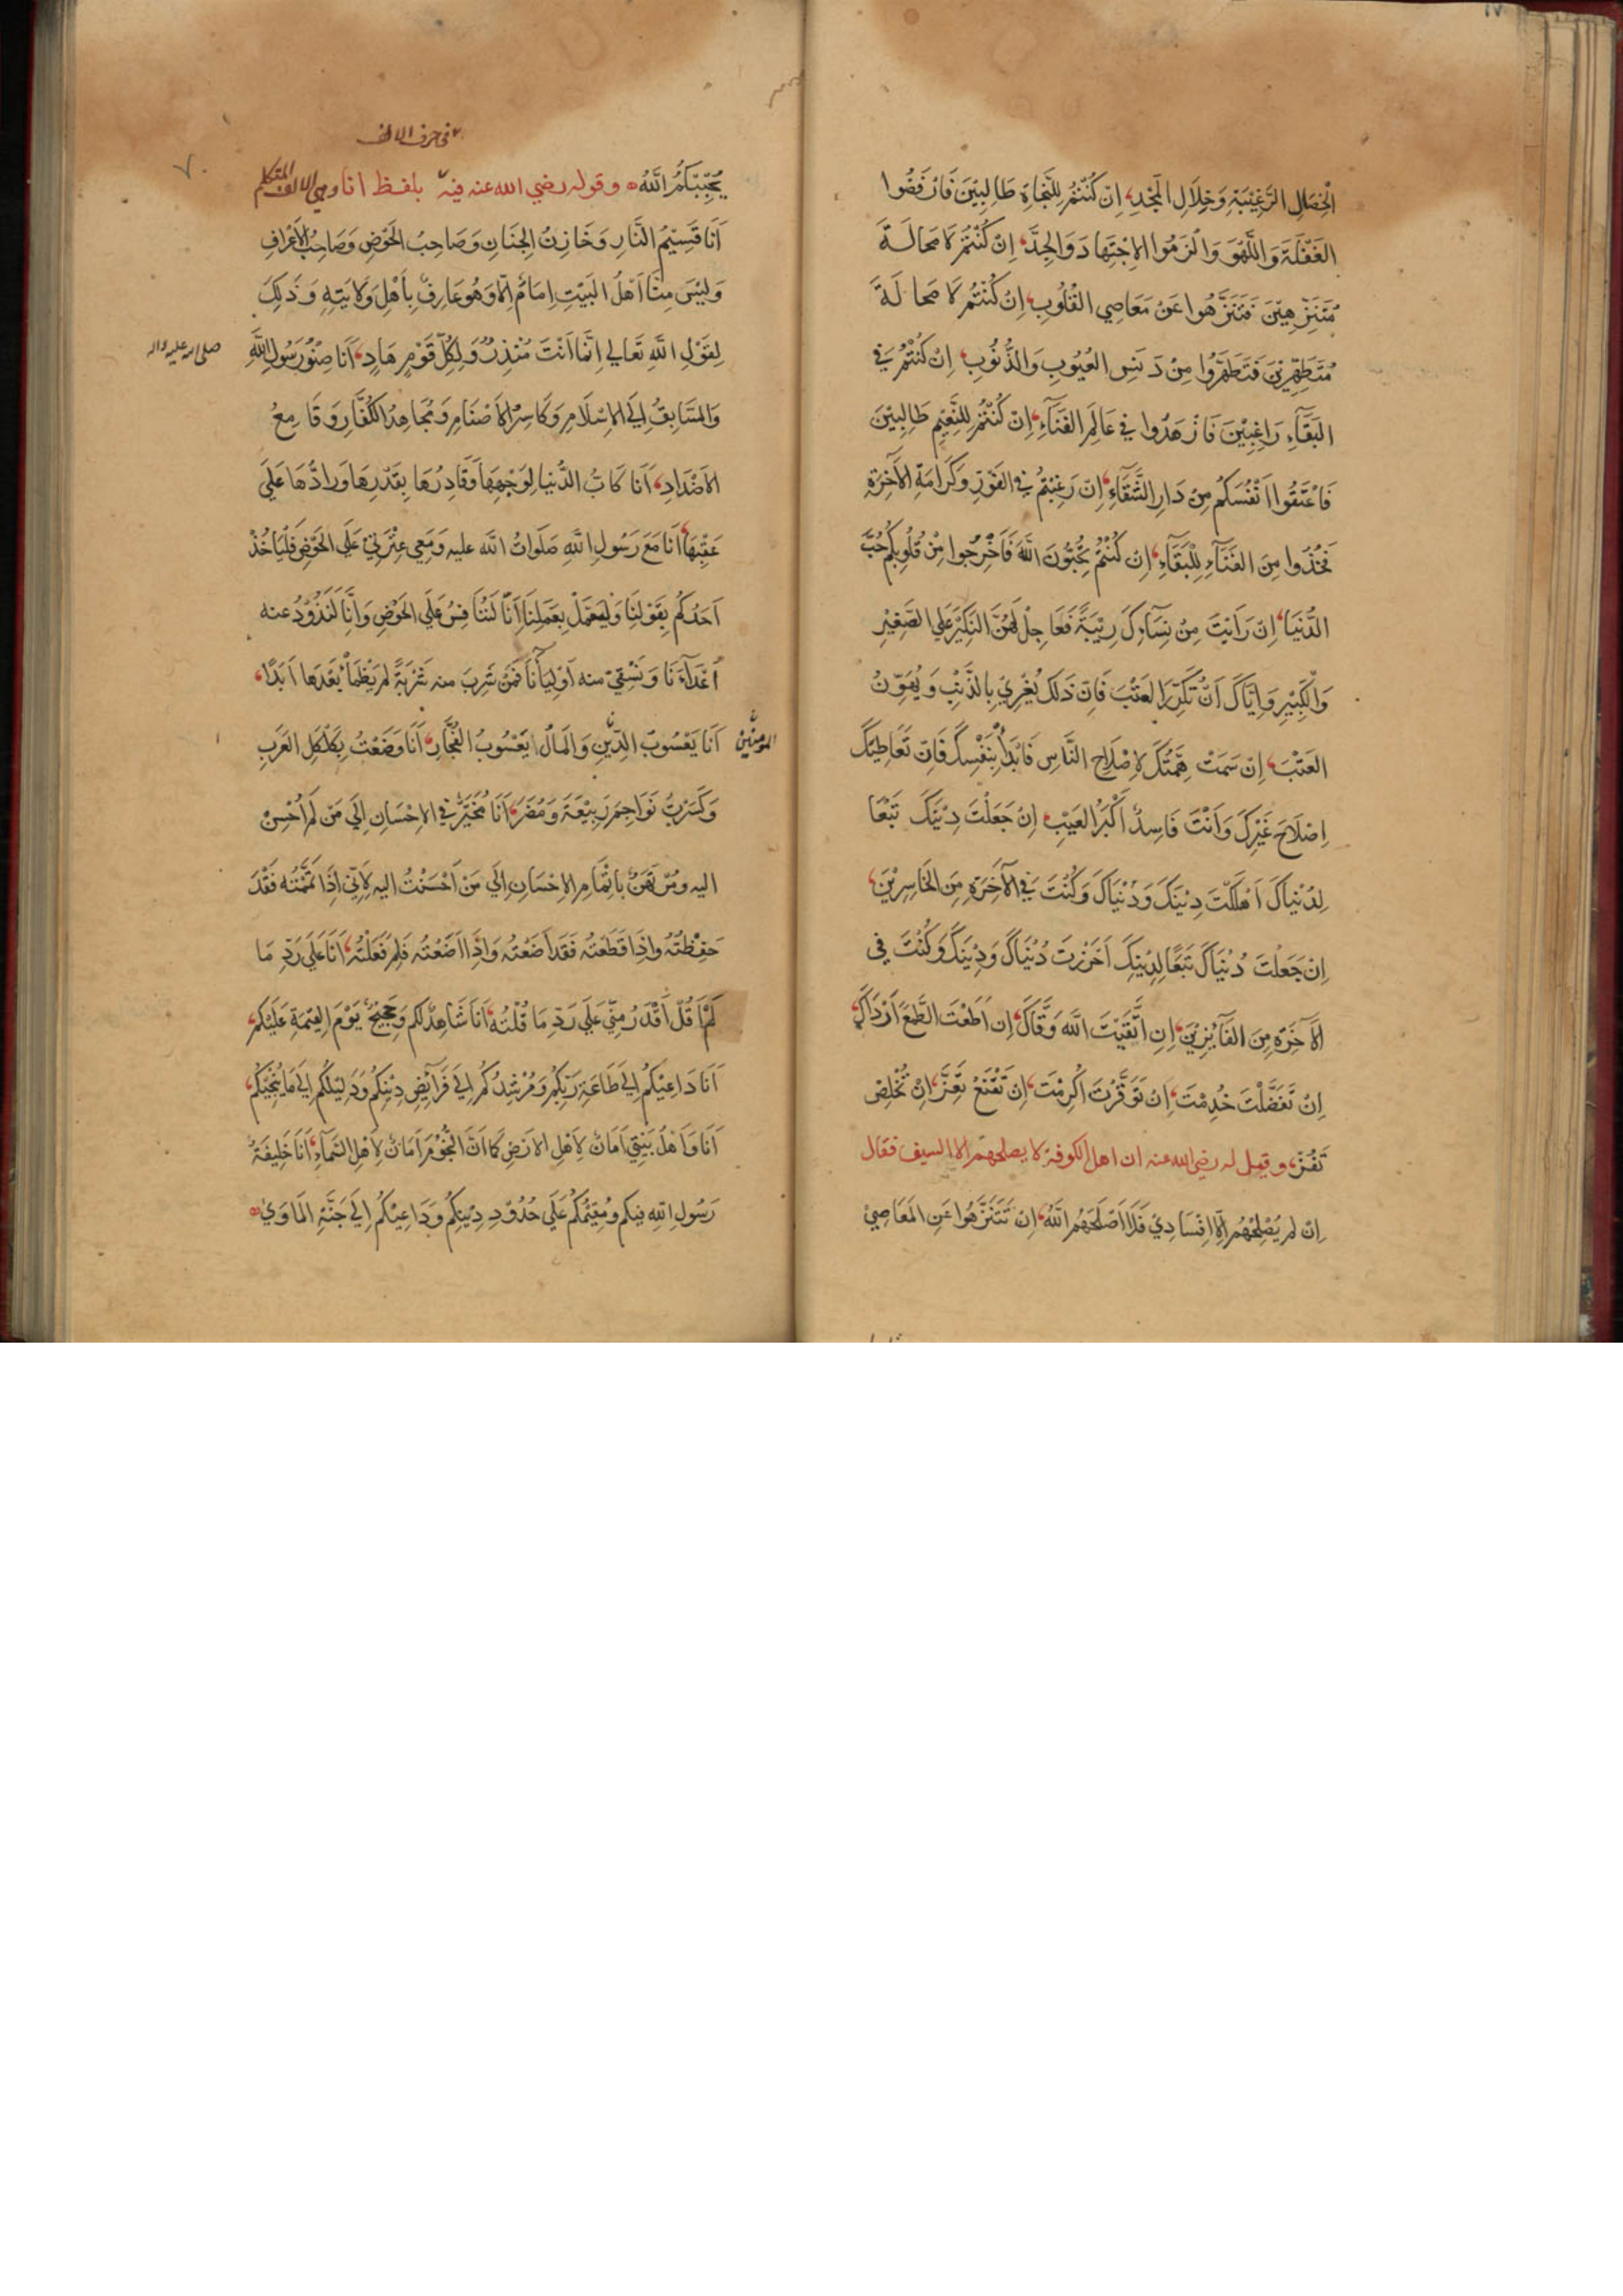 الْخِصَالِ الرَّغِيْبَةِ وَخِلَالِ الْمَجْدِ، اِنْ كُنْتُمْ لِلنَّجَاةِ طَالِبِيْنَ فَارْفُضُوا
الغَفْلَةَ وَاللَّهْوَ وَالْزَمُوا الاِجْتِهَادَ وَالْجِدَّ، اِنْ كُنْتُمْ لَا مَحَالَةَ
مُتَنَزِّهِيْنَ فَتَنَزَّهُوا عَنْ مَعَاصِي الْقُلُوبِ، اِنْ كُنْتُمْ لَا مَحَالَةَ
مُتَطَهِّرِيْنَ فَتَطَهَّرُوا مِنْ دَنَسِ العُيُوبِ وَالذُّنُوبِ، اِنْ كُنْتُمْ فِي
البَقَاءِ رَاغِبِيْنَ فَازْهَدُوا فِي عَالَمِ الفَنَاءِ، اِنْ كُنْتُمْ لِلنَّعِيْمِ طَالِبِيْنَ
فَاعْتِقُوا اَنْفُسَكُمْ مِنْ دَارِ الشَّقَاءِ، اِنْ رَغِبْتُمْ فِي الفَوْزِ وَكَرَامَةِ الآخِرَةِ
فَخُذُوا مِنَ الفَنَاءِ لِلْبَقَاءِ، اِنْ كُنْتُمْ تُحِبُّونَ اللهَ فَاَخْرِجُوا مِنْ قُلُوبِكُمْ حُبَّ
الدُّنْيَا، اِنْ رَاَيْتَ مِنْ نِسَائِكَ رِيْبَةً فَعَاجِلْ لَهُنَّ النَّكِيْرَ عَلَي الصَّغِيْرِ
وَالْكَبِيْرِ وَاِيَّاكَ اَنْ تُكَرِّرَ العَتْبَ فَاِنَّ ذَلِكَ يُغْرِيْ بِالذَّنْبِ وَيُهَوِّنُ
العَتْبَ، اِنْ سَمَتْ هِمَّتُكَ لِاِصْلَاحِ النَّاسِ فَابْدَأْ بِنَفْسِكَ فَاِنَّ تَعَاطِيْكَ
اِصْلَاحَ غَيْرِكَ وَاَنْتَ فَاسِدٌ اَكْبَرُ العَيْبِ، اِنْ جَعَلْتَ دِيْنَكَ تَبَعًا
لِدُنْيَاكَ اَهْلَكْتَ دِيْنَكَ وَدُنْيَاكَ وَكُنْتَ فِي الآخِرَةِ مِنَ الْخَاسِرِيْنَ،
اِنْ جَعَلْتَ دُنْيَاكَ تَبَعًا لِدِيْنِكَ اَحْرَزْتَ دُنْيَاكَ وَدِيْنَكَ وَكُنْتَ فِي
الآخِرَةِ مِنَ الفَائِزِيْنَ، اِنِ اتَّقَيْتَ اللهَ وَقَاكَ، اِنْ اَطَعْتَ الطَّمَعَ اَرْدَاكَ،
اِنْ تَفَضَّلْتَ خُدِمْتَ، اِنْ تَوَقَّرْتَ اُكْرِمْتَ، اِنْ تَقْنَعْ تَعِزَّ، اِنْ تُخْلِصْ
تَفُزْ، وقيل له رضي الله عنه ان اهل الكوفة لا يصلحهم الا السيف فقال
اِنْ لَمْ يُصْلِحْهُمْ اِلَّا اِفْسَادِيْ فَلَا اَصْلَحَهُمُ اللهُ، اِنْ تَتَنَزَّهُوا عَنِ المَعَاصِيْ
في حرف الالف
يُحْبِبْكُمُ اللهُ وقوله رضي الله عنه فيه بلفظ انا وهي الالف المتكلم
اَنَا قَسِيْمُ النَّارِ وَخَازِنُ الْجِنَانِ وَصَاحِبُ الْحَوْضِ وَصَاحِبُ الاَعْرَافِ
وَلَيْسَ مِنَّا اَهْلَ البَيْتِ اِمَامٌ اِلَّا وَهُوَ عَارِفٌ بِاَهْلِ وَلَايَتِهِ وَذَلِكَ
لِقَوْلِ اللهِ تَعَالي اِنَّمَا اَنْتَ مُنْذِرٌ وَلِكُلِّ قَوْمٍ هَادٍ، اَنَا صِنْوُ رَسُولِ اللهِ
صلى الله عليه واله
وَالسَّابِقُ اِلَي الاِسْلَامِ وَكَاسِرُ الاَصْنَامِ وَمُجَاهِدُ الكُفَّارِ وَقَامِعُ
الاَضْدَادِ، اَنَا كَابُّ الدُّنْيَا لِوَجْهِهَا وَقَادِرُهَا بِقَدْرِهَا وَرَادُّهَا عَلَي
عَقِبِهَا، اَنَا مَعَ رَسُولِ اللهِ صَلَوَاتُ اللهِ عليه وَمَعِي عِتْرَتِيْ عَلَي الْحَوْضِ فَلْيَاْخُذْ
اَحَدُكُمْ بِقَوْلِنَا وَلْيَعْمَلْ بِعَمَلِنَا اِنَّا لَنُنَافِسُ عَلَي الْحَوْضِ وَاِنَّا لَنَذُوْدُ عنه
اَعْدَاءَنَا وَنَسْقِيْ منه اَوْلِيَاءَنَا فَمَنْ شَرِبَ منه شَرْبَةً لم يَظْمَأْ بَعْدَهَا اَبَدًا،
اَنَا يَعْسُوبُ الدِّيْنِ وَالمَالُ يَعْسُوبُ الفُجَّارِ، اَنَا وَضَعْتُ بِكَلْكَلِ العَرَبِ
المؤمنين
وَكَسَرْتُ نَوَاجِمَ رَبِيْعَةَ وَمُضَرَ، اَنَا مُخَيَّرٌ فِي الاِحْسَانِ اِلَي مَنْ لَمْ اُحْسِنْ
اليه ومُرْتَهَنٌ بِاِتْمَامِ الاِحْسَانِ اِلَي مَنْ اَحْسَنْتُ اليه لِاَنِّي اِذَا تَمَّمْتُه فَقَدْ
حَفِظْتُهُ وَاِذَا قَطَعْتُه فَقَدْ اَضَعْتُهُ وَاِذَا اَضَعْتُه فَلِمَ فَعَلْتُهُ، اَنَا عَلَي رَدِّ مَا
لَمْ اَقُلْ اَقْدَرُ مِنِّي عَلَي رَدِّ مَا قُلْتُهُ، اَنَا شَاهِدٌ لَكُمْ وَحَجِيْجٌ يَوْمَ القِيمَةِ عَلَيْكُمْ،
اَنَا دَاعِيْكُمْ اِلَي طَاعَةِ رَبِّكُمْ وَمُرْشِدُكُمْ اِلَي فَرَائِضِ دِيْنِكُمْ وَدَلِيْلُكُمْ اِلَي مَا يُنْجِيْكُمْ،
اَنَا وَاَهْلُ بَيْتِي اَمَانٌ لِاَهْلِ الارْضِ كَمَا اَنَّ النُّجُوْمَ اَمَانٌ لِاَهْلِ السَّمَاءِ، اَنَا خَلِيفَةُ
رَسُولِ اللهِ فيكم ومُقِيْمُكُمْ عَلَي حُدُوْدِ دِيْنِكُمْ وَدَاعِيْكُمْ اِلَي جَنَّةِ المَاوَي